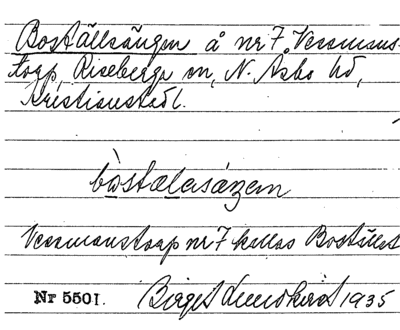 Boställsängen å nr 7 Vessmans-
torp, Riseberga sn, N. Åsbo hd,
Kristianstadsl.
bòstalasáŋen
Vessmanstorp nr 7 kallas Bostället
Nr 5501. Birger Lundkvist 1935